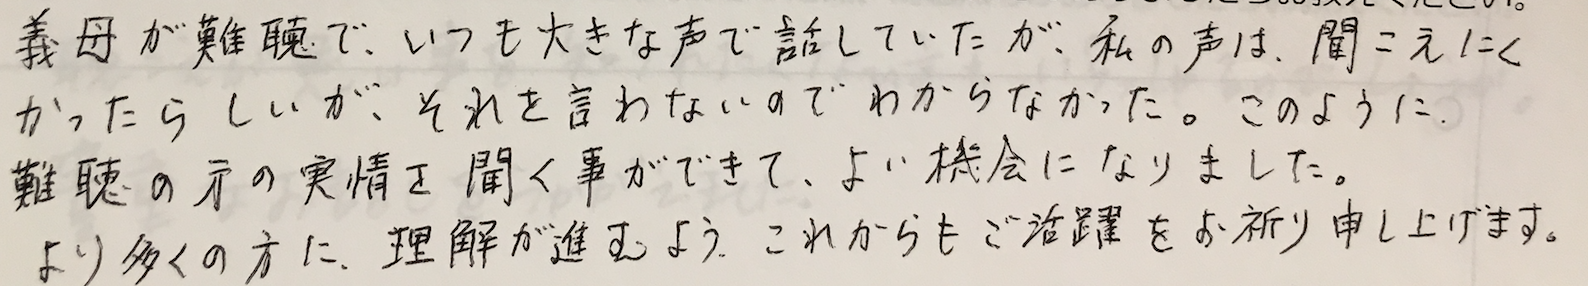 義母が難聴で、いつも大きな声で話していたが、私の声は、聞こえにく
かったらしいが、それを言わないのでわからなかった。このように、
難聴の方の実情を聞く事ができて、よい機会になりました。
より多くの方に、理解が進むよう、これからもご活躍をお祈り申し上げます。